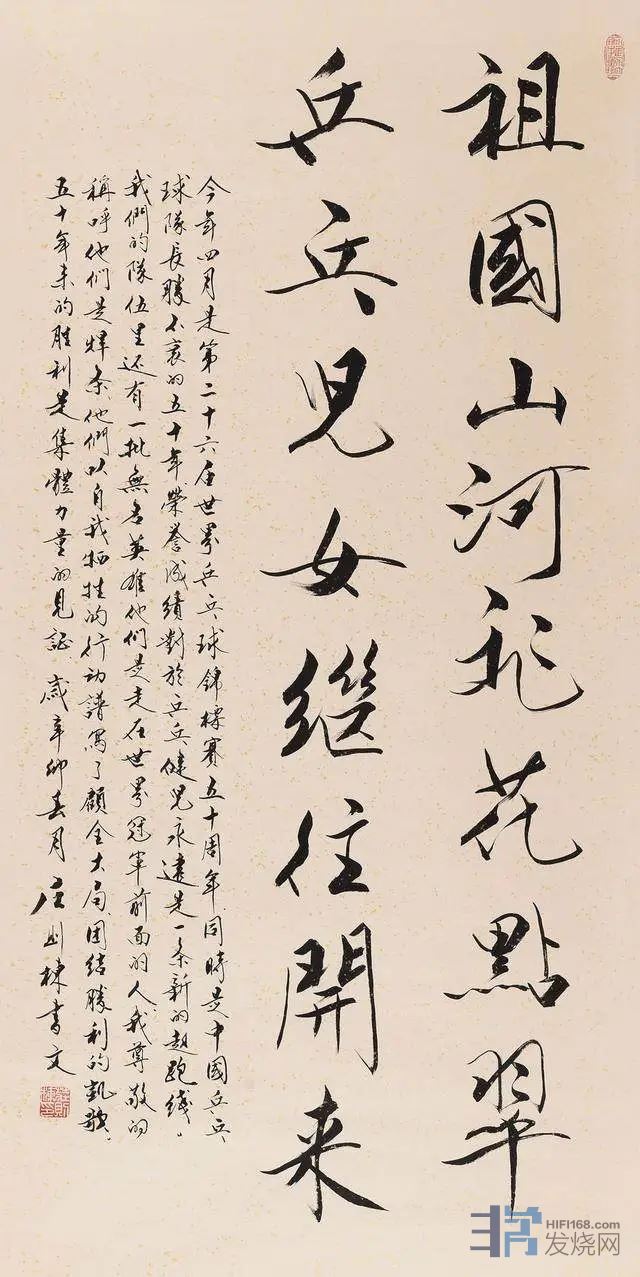 祖國山河飛花點翠
乒乓兒女繼往開来
今年四月是第二十六届世界乒乓球锦標赛五十周年同時是中國乒乓
球隊長勝不衰的五十年榮誉成績對於乒乓健兒永遠是一条新的起跑线。
我們的隊伍里还有一批無名英雄他们是走在世界冠军前面的人我尊敬的
稱呼他们是辉条他們以自我牺牲的行动谱寫了顧全大局团结勝利的凱歌。
五十年来的胜利是集體力量的見证 歲辛卯春月 庄则棟書文
HIFI168.com
发烧网